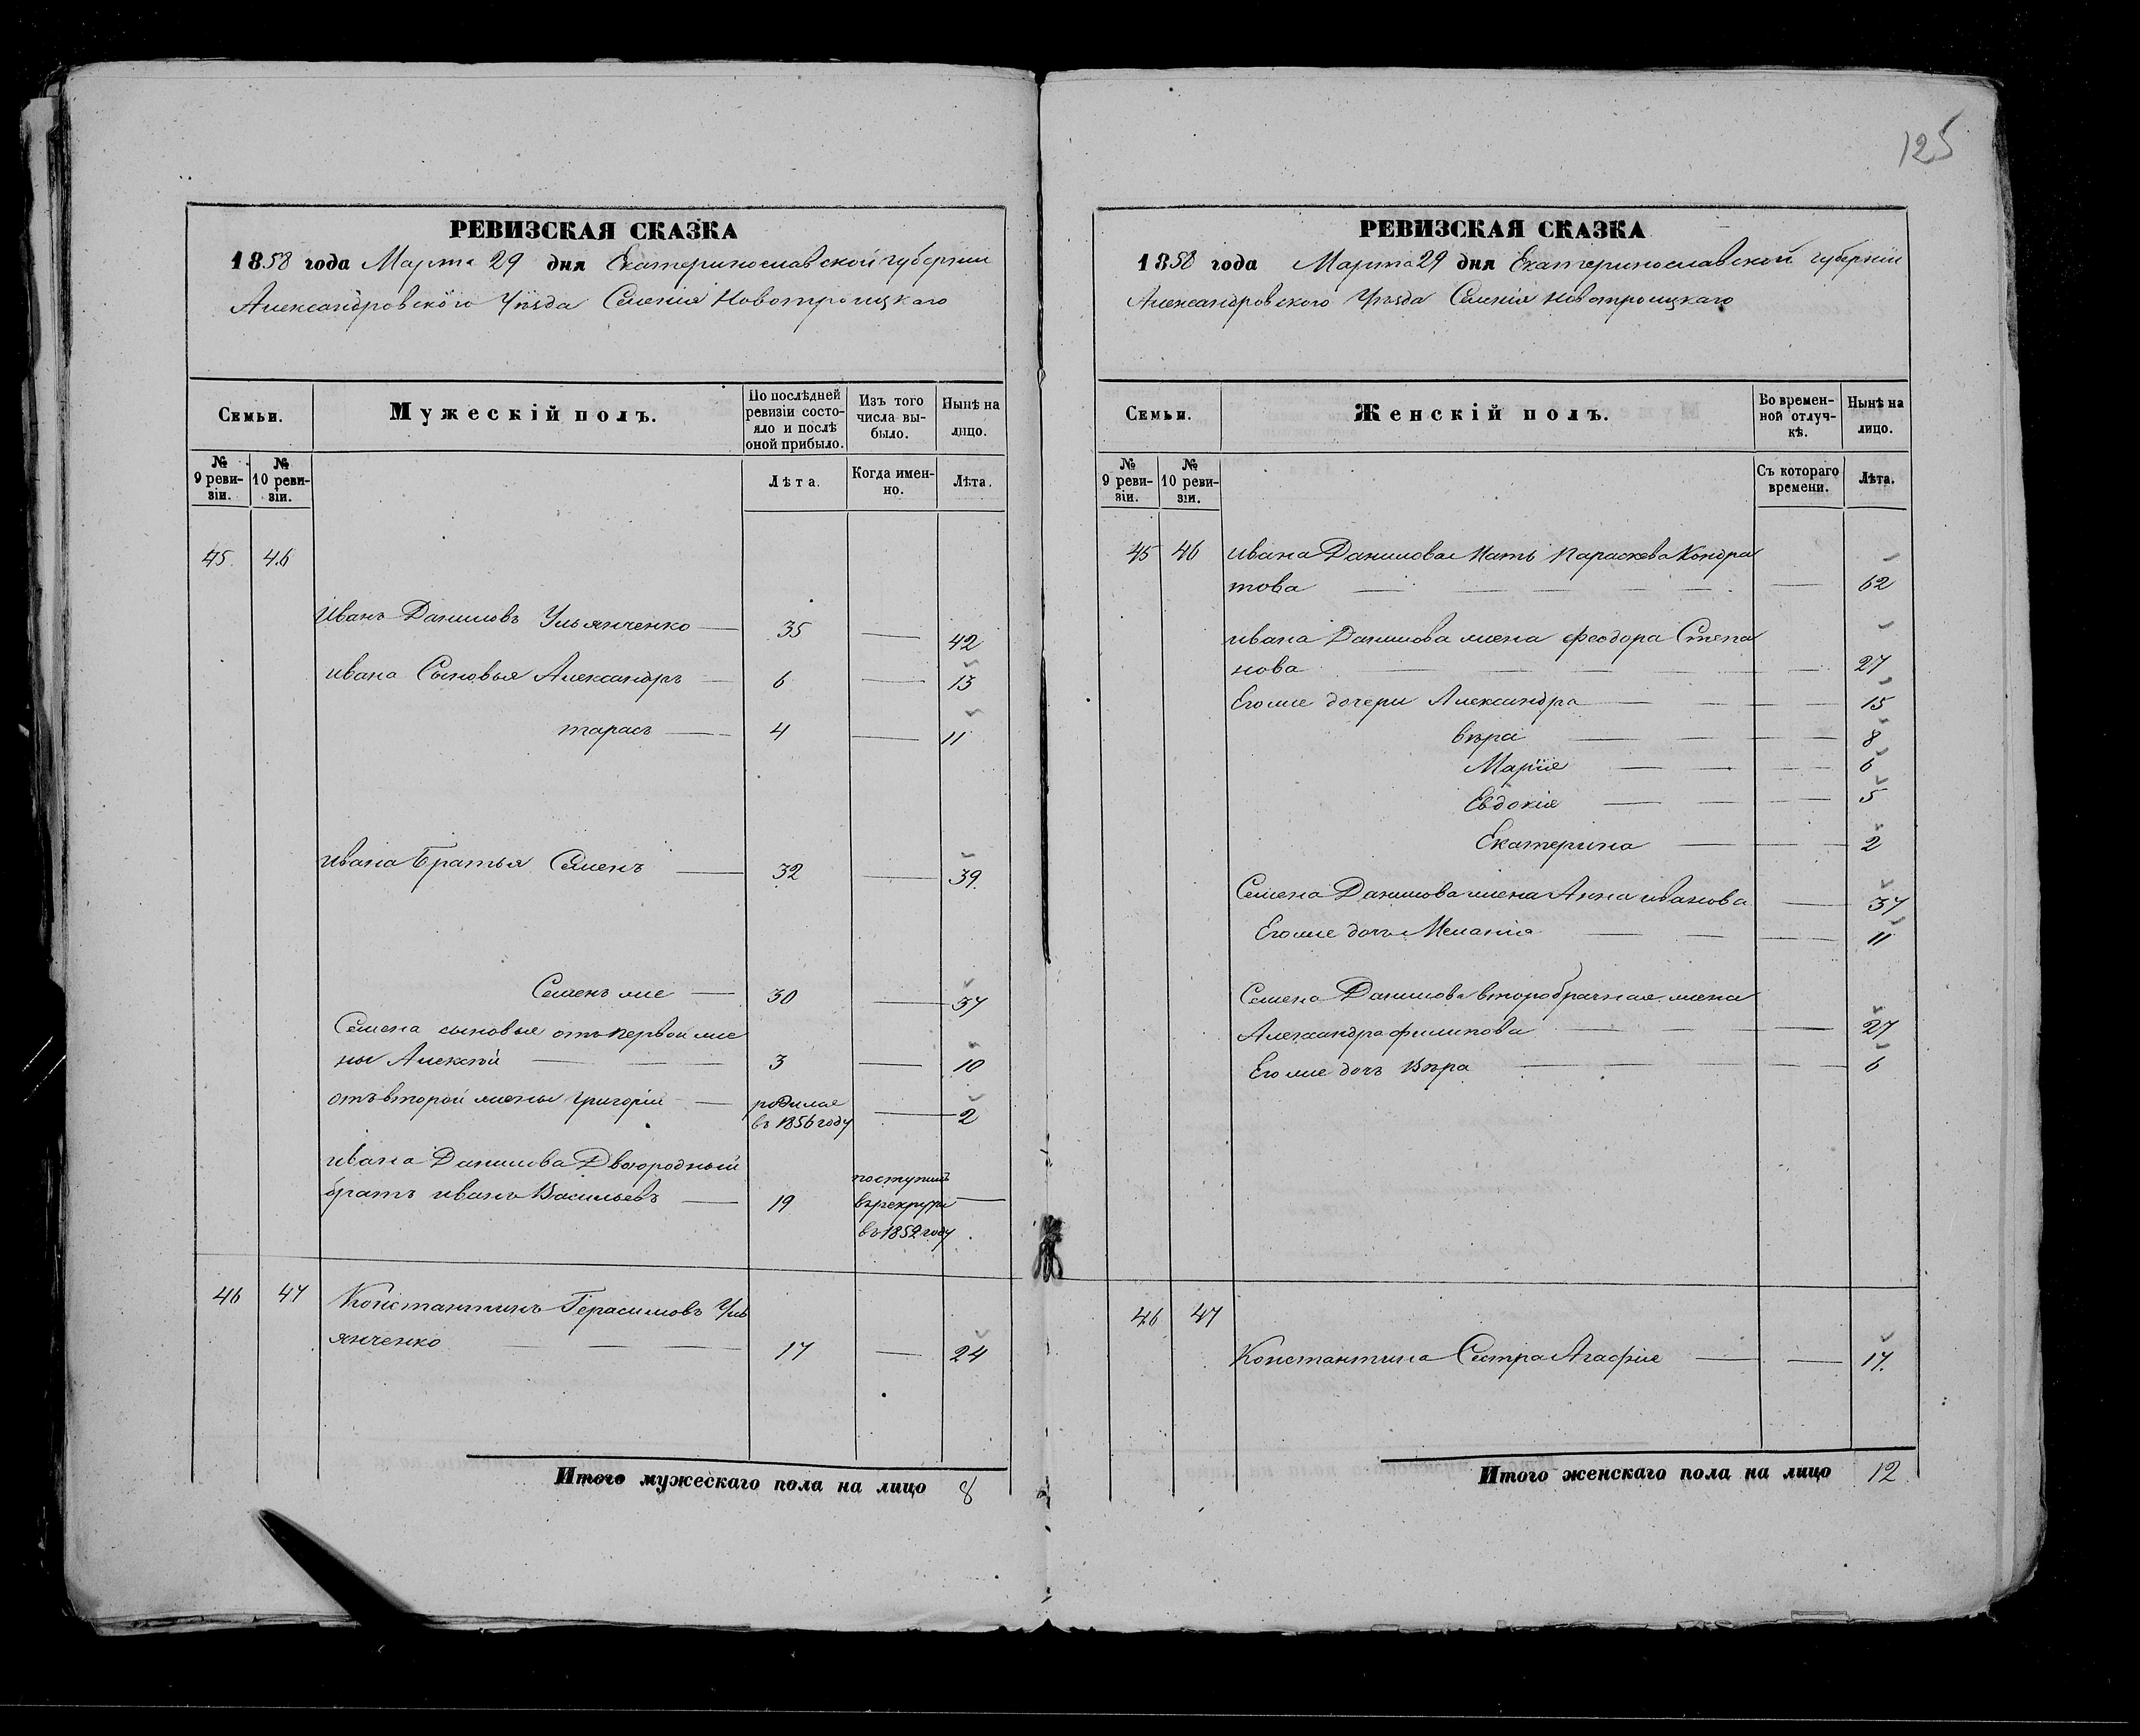 125
РЕВИЗСКАЯ СКАЗКА
1858 года Марта 29 дня Екатеринославской губернии
Александровского Уѣзда Селенія Новотроицкаго
Семьи.
Мужескій полъ.
По послѣдней ревизіи состояло и послѣ оной прибыло.
Изъ того числа выбыло.
Нынѣ на лицо.
№ 9 ревизіи.
№ 10 ревизіи.
Лѣта.
Когда именно.
Лѣта.
45 46
Иванъ Даниловъ Ульянченко — 35 — 42
Ивана Сыновья Александръ — 6 — 13
Тарасъ — 4 — 11
Ивана Братья Семенъ — 32 — 39
Семенъ же — 30 — 37
Семена сыновья отъ первой же
ны Алексѣй — 3 — 10
отъ второй жены Григорій — родился в 1856 году — 2
Ивана Данилова Двоюродный
братъ Иванъ Васильевъ — 19 поступилъ в рекруты въ 1852 году —
46 47 Константинъ Герасимовъ Уль
янченко — 17 — 24
Итого мужескаго пола на лицо 8
РЕВИЗСКАЯ СКАЗКА
1858 года Марта 29 дня Екатеринославской губерніи
Александровского Уѣзда Селенія Новотроицкаго
Семьи.
Женскій полъ.
Во временной отлучкѣ.
Нынѣ на лицо.
№ 9 ревизіи.
№ 10 ревизіи.
Съ котораго времени.
Лѣта.
45 46 Ивана Данилова Мать Параскева Кондра
това — 62
Ивана Данилова жена Феодора Степа
нова — 27
Его же дочери Александра — 15
Вѣра — 8
Марія — 6
Евдокія — 5
Екатерина — 2
Семена Данилова жена Анна Иванова — 37
Его же дочь Меланія — 11
Семена Данилова второбрачная жена
Александра Филипова — 27
Его же дочь Вѣра — 6
46 47
Константина Сестра Агафія — 17.
Итого женскаго пола на лицо 12